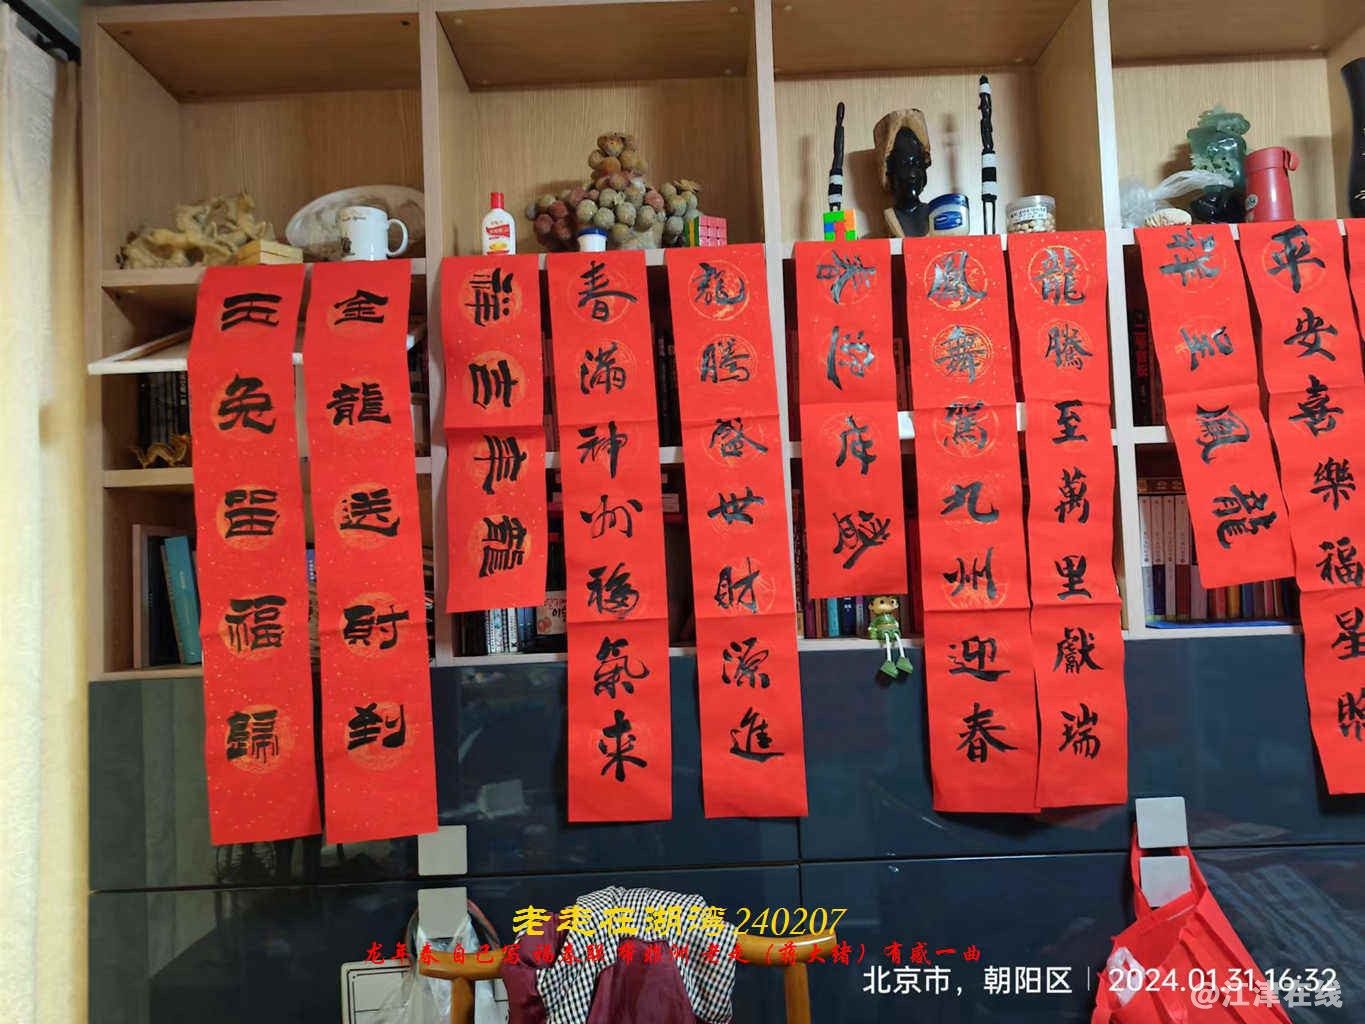 平安喜樂福星照
龍鳳呈祥
龍騰至萬里獻瑞
鳳舞駕九州迎春
龍騰盛世財源進
春滿神州福氣來
龍年吉祥
金龍送財到
玉兔留福歸
老走在湖湾240207
龙年春自己写福春联 带非洲 老走（蒋大绪）有感一曲
北京市，朝阳区 | 2024.01.31 16:32
@江津在线